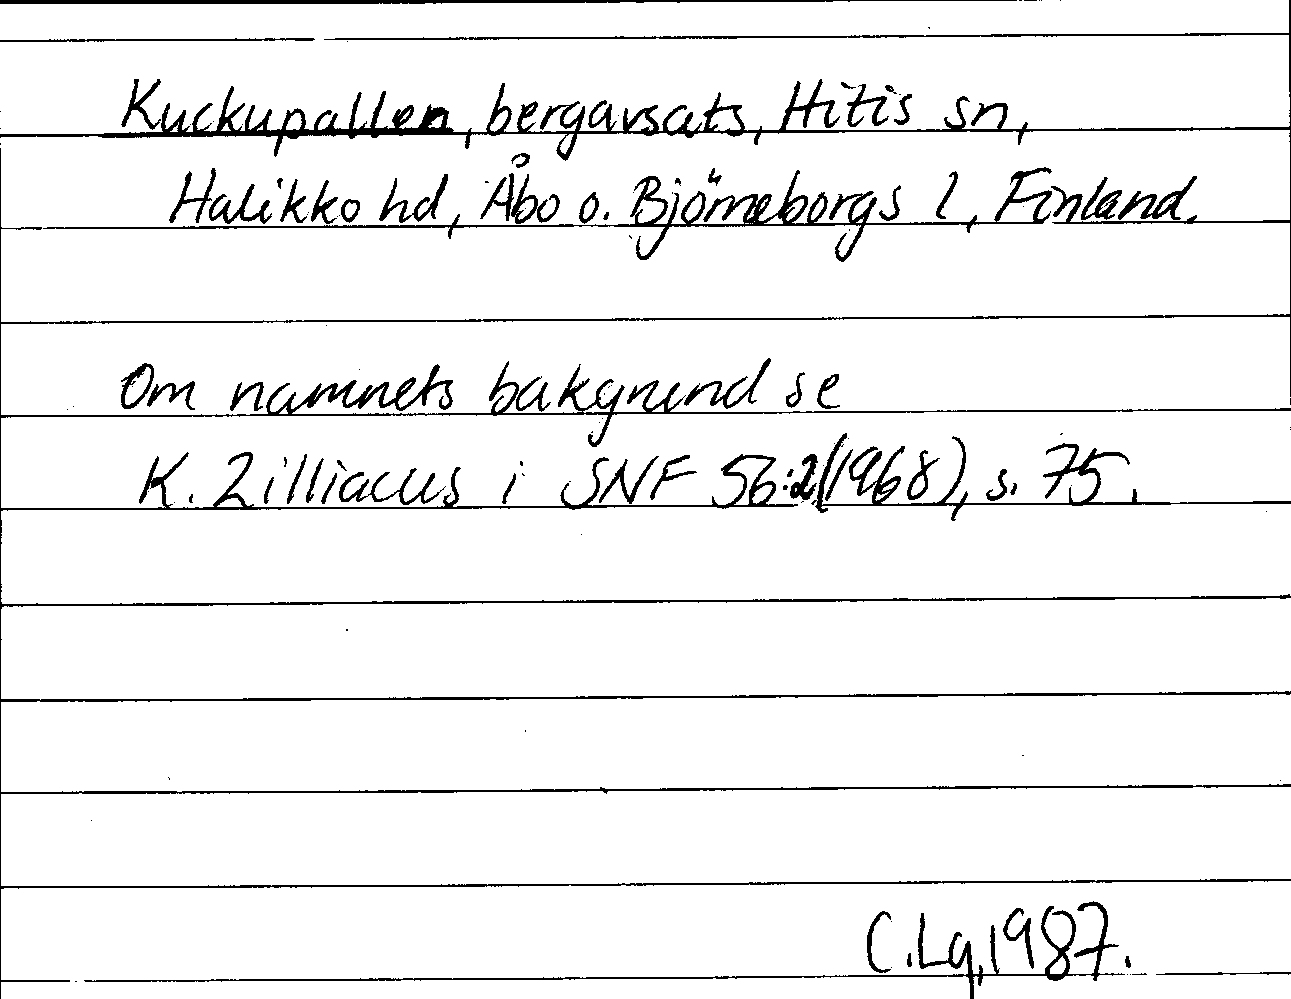 Kuckupallen, bergavsats, Hitis sn,
Halikko hd, Åbo o. Björneborgs l, Finland.
Om namnets bakgrund se
K. Zilliacus i SNF 56:2(1968), s. 75.
C.Lq,1987.